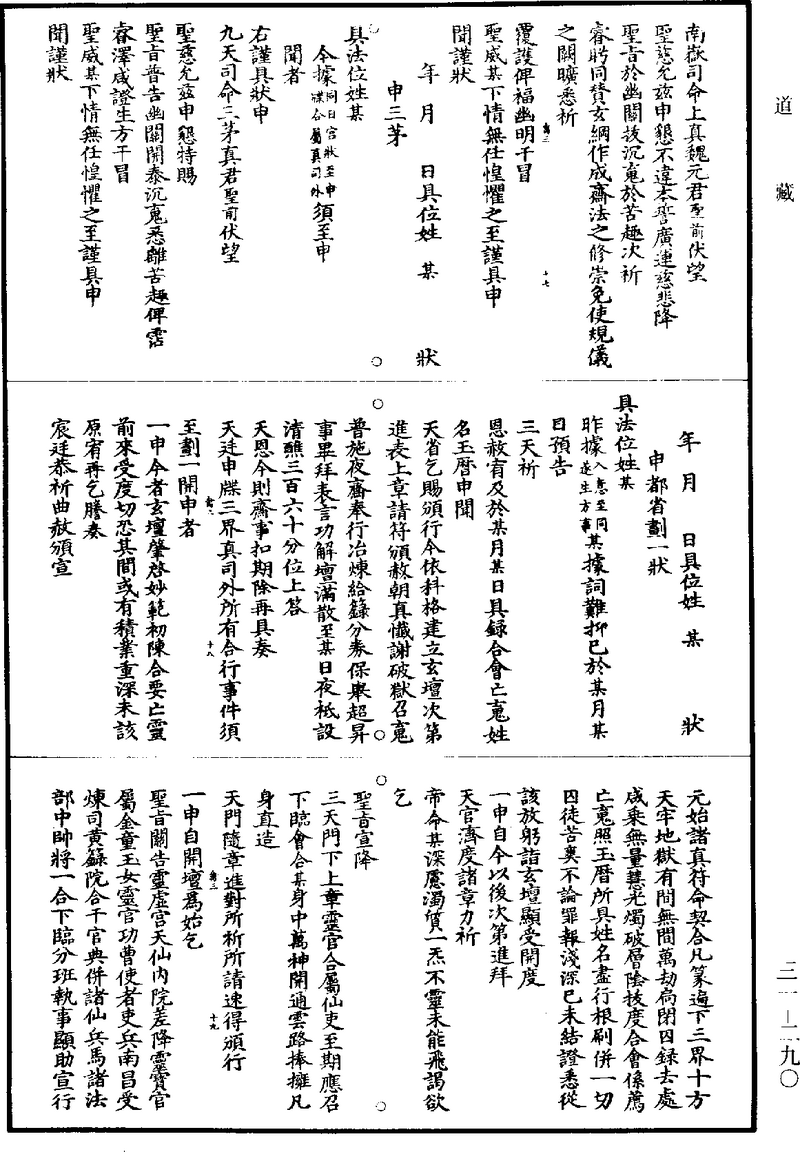 道藏
南嶽司命上真魏元君聖前伏望
聖慈允茲申懇不違本誓廣運慈悲降
聖旨於幽關拔沉䰟於苦趣次祈
睿眄同贊玄綱作成齋法之修崇免使規儀
之闕曠悉祈
覆護俾福幽明干冒
聖威某下情無任惶懼之至謹具申
聞謹狀
年月日具位姓某狀
申三茅
具法位姓某
今據同日宮狀至申牒合屬真司外須至申
聞者
右謹具狀申
九天司命三茅真君聖前伏望
聖慈允茲申懇特賜
聖旨普告幽關開泰沉䰟悉離苦趣俾霑
睿澤咸證生方干冒
聖威某下情無任惶懼之至謹具申
聞謹狀
十七
年月日具位姓某狀
申都省劃一狀
具法位姓某
昨據入意至同逐生方事某據詞難抑已於某月某
日預告
三天祈
恩赦宥及於某月某日具錄合會亡䰟姓
名玉曆申聞
天省乞賜頒行今依科格建立玄壇次第
進表上章請符頒赦朝真懺謝破獄召䰟
普施夜齋奉行冶煉給籙分券保舉超昇
事畢拜表言功解壇滿散至某日夜祗設
清醮三百六十分位上答
天恩今則齋事扣期除再具奏
天廷申牒三界真司外所有合行事件須
至劃一開申者
一申今者玄壇肇啓妙範初陳合要亡靈
前來受度切恐其間或有積業重深未該
原宥再乞謄奏
宸廷恭祈曲赦頒宣
十八
元始諸真符命契合凡篆遍下三界十方
天牢地獄有間無間萬劫扃閉囚錄去處
咸乘無量慧光燭破層陰拔度合會係薦
亡䰟照玉曆所具姓名盡行根刷併一切
囚徒苦爽不論罪報淺深已未結證悉從
該放躬詣玄壇顯受開度
一申自今以後次第進拜
天官濟度諸章力祈
帝命某深慮濁質一炁不靈未能飛謁欲
乞
聖旨宣降
三天門下上章靈官合屬仙吏至期應召
下臨會合某身中萬神開通雲路捧擁凡
身直造
天門隨章進對所祈所請速得頒行
一申自開壇爲始乞
聖旨關告靈虛宮天仙內院差降靈寶官
屬金童玉女靈官功曹使者吏兵南昌受
煉司黃籙院合干官典併諸仙兵馬諸法
部中帥將一合下臨分班執事顯助宣行
十九
三一—二九〇